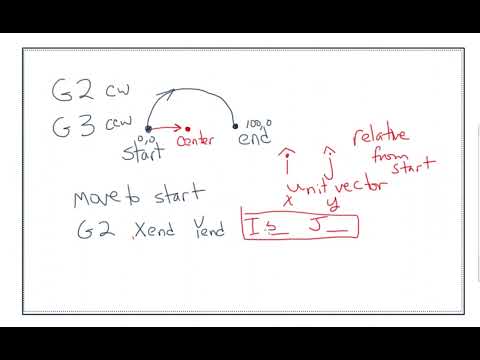 G2 cw
G3 ccw
0,0
start
center
100,0
end
i j
unit vector
x y
relative
from
start
move to start
G2 Xend Yend I J